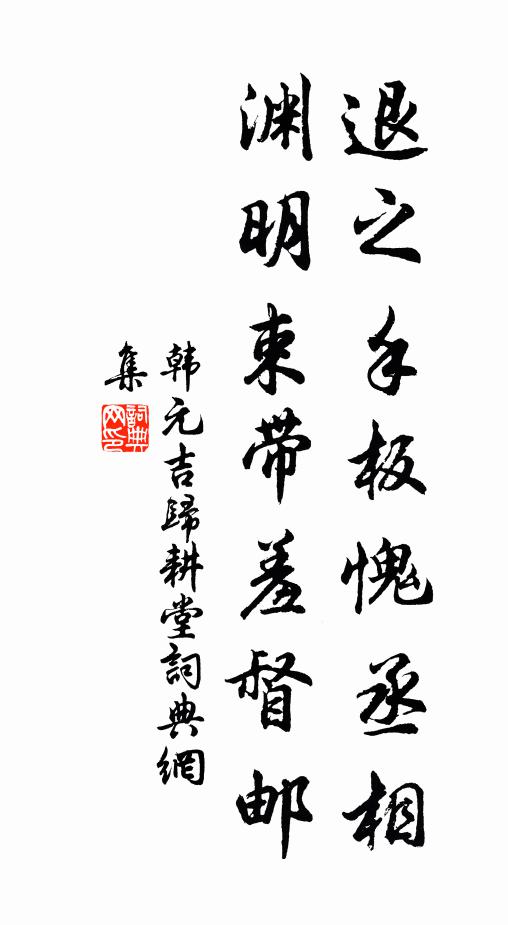 退之手板愧丞相
渊明束带羞督邮
韩元吉歸耕堂詞典網
集
詞典网印